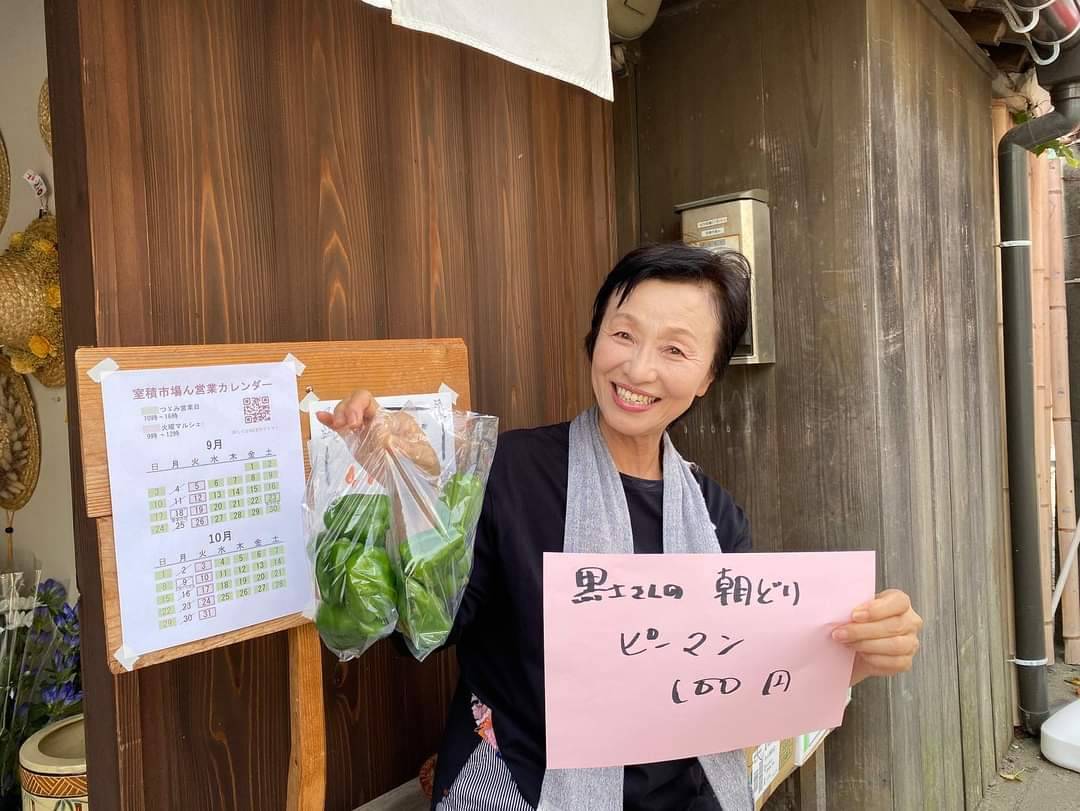 室積市場ん営業カレンダー
つゞみ営業日
10時~16時
火曜マルシェ
9時~12時
9月
日 月 火 水 木 金 土
1 2
3 4 5 6 7 8 9
10 11 12 13 14 15 16
17 18 19 20 21 22 23
24 25 26 27 28 29 30
10月
日 月 火 水 木 金 土
1 2 3 4 5 6 7
8 9 10 11 12 13 14
15 16 17 18 19 20 21
22 23 24 25 26 27 28
29 30 31
黒土さんの 朝どり
ピーマン
100円